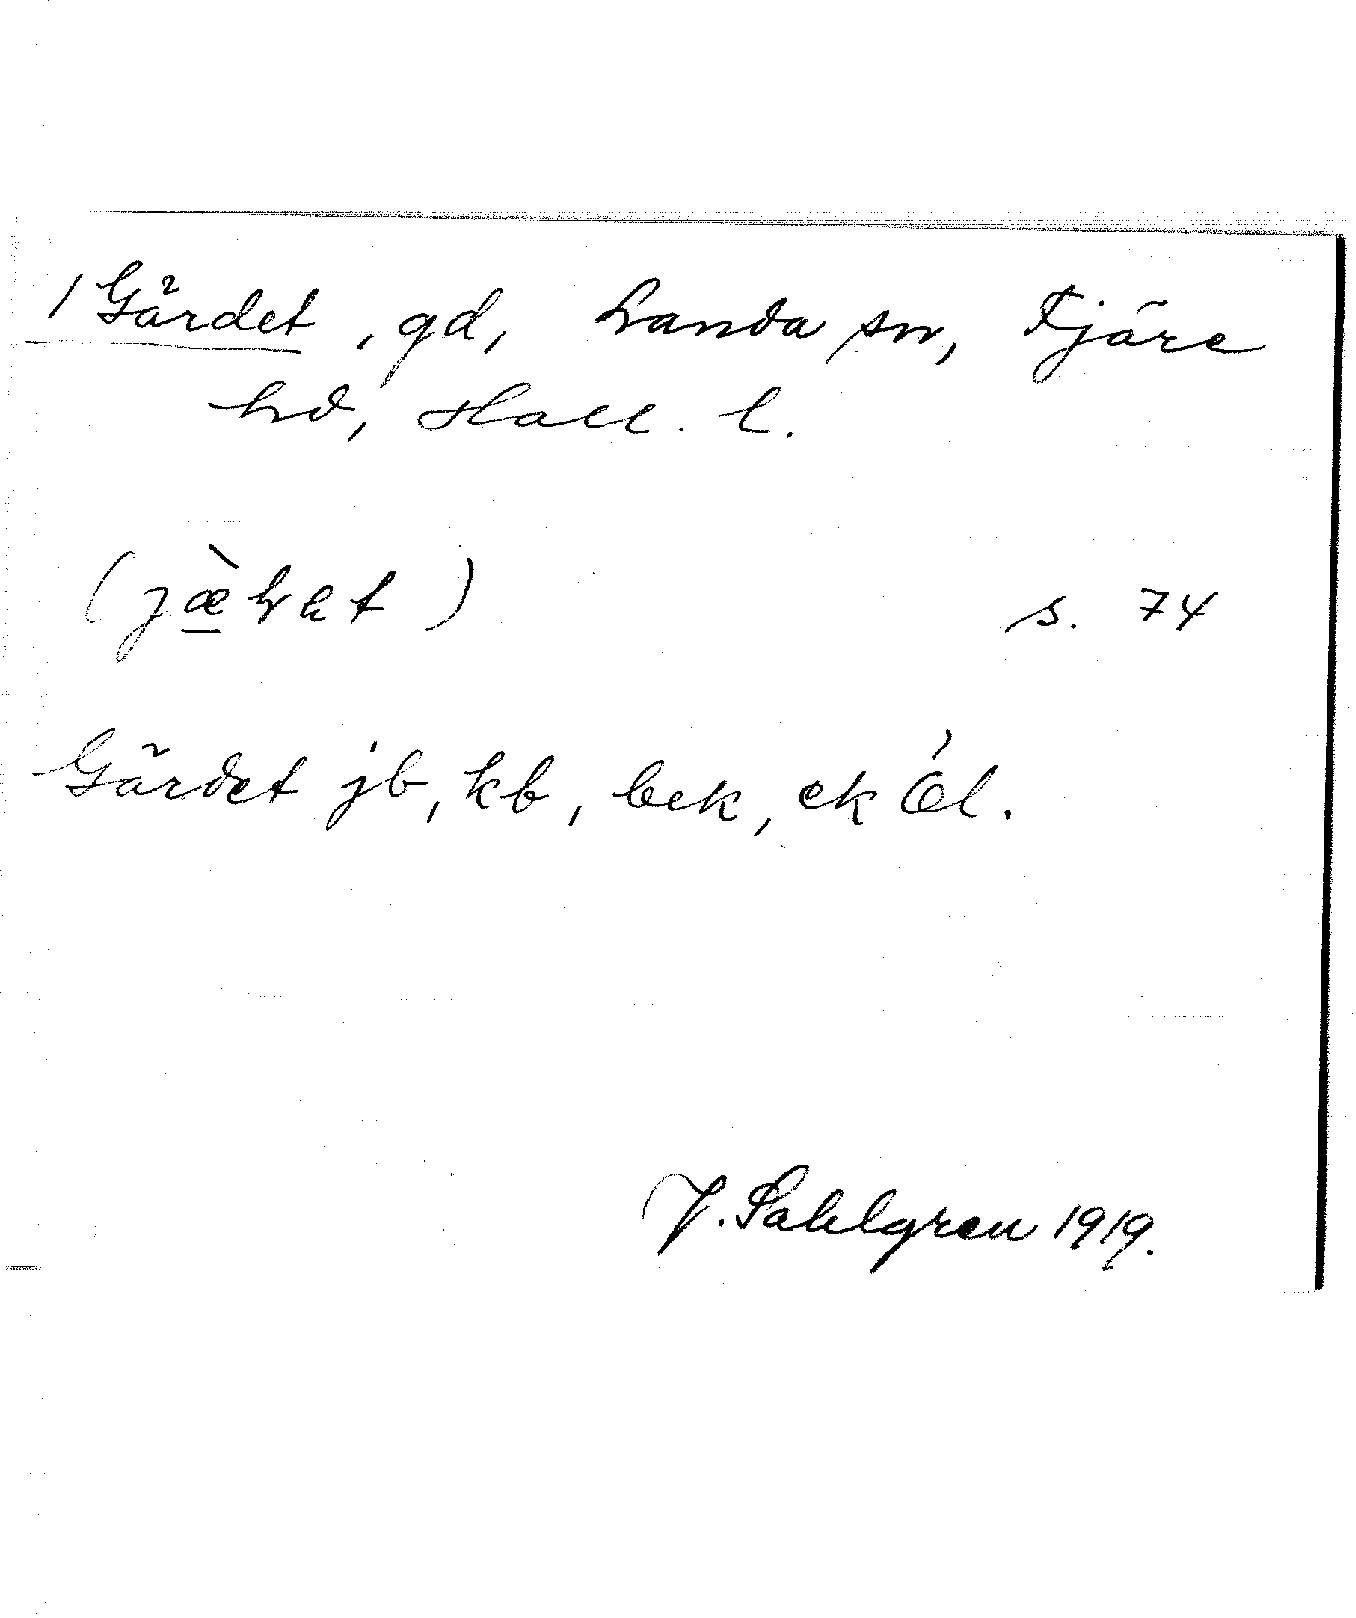 1 Gärdet, gd, Landa sn, Fjäre
hd, Hall. l.
s. 74
Gärdet jb, kb, bek, ek Öl.
J. Sahlgren 1919.